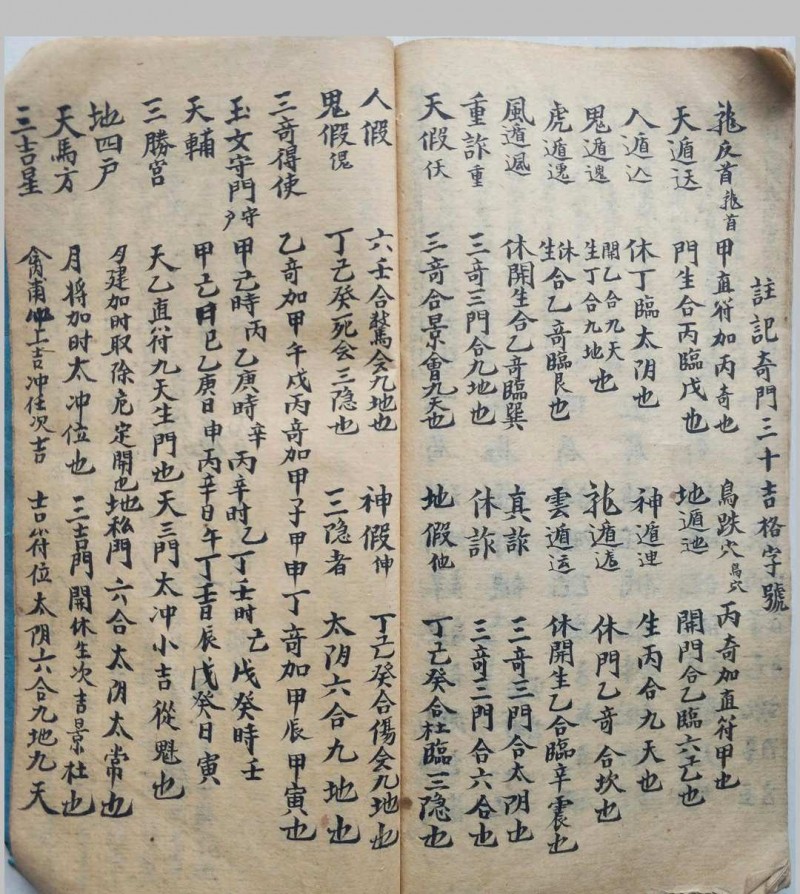 註記奇門三十吉格字號
龍反首 龍首 甲直符加丙奇也 鳥跌穴 鳥穴 丙奇加直符甲也
天遁 門生合丙臨戊也 地遁 開門合乙臨六己也
人遁 休丁臨太阴也 神遁 生丙合九天也
鬼遁 開乙合九天 生丁合九地也 龍遁 休門乙奇合坎也
虎遁 休生合乙奇臨艮也 雲遁 休開生乙合臨辛震也
風遁 休開生合乙奇臨巽 真詐 三奇三門合太阴也
重詐重 三奇三門合九地也 休詐 三奇三門合六合也
天假 三奇合景會九天也 地假 丁己癸合杜臨三隐也
人假 六壬合驚会九地也 神假 丁己癸合傷会九地也
鬼假 丁己癸死会三隐也 三隐者 太阴六合九地也
三奇得使 乙奇加甲午戌丙奇加甲子甲申丁奇加甲辰甲寅也
玉女守門 守户 甲己時丙乙庚時辛丙辛時乙丁壬时己戊癸時壬
天輔 甲己日巳乙庚日申丙辛日午丁壬日辰戊癸日寅
三勝宮 天乙直符九天生門也天三門太冲小吉從魁也
地四户 月建加时取除危定開也地私門六合太阴太常也
天馬方 月將加时太冲位也 三吉門開休生次吉景杜也
三吉星 禽甫心上吉冲任次吉 吉符位太阴六合九地九天